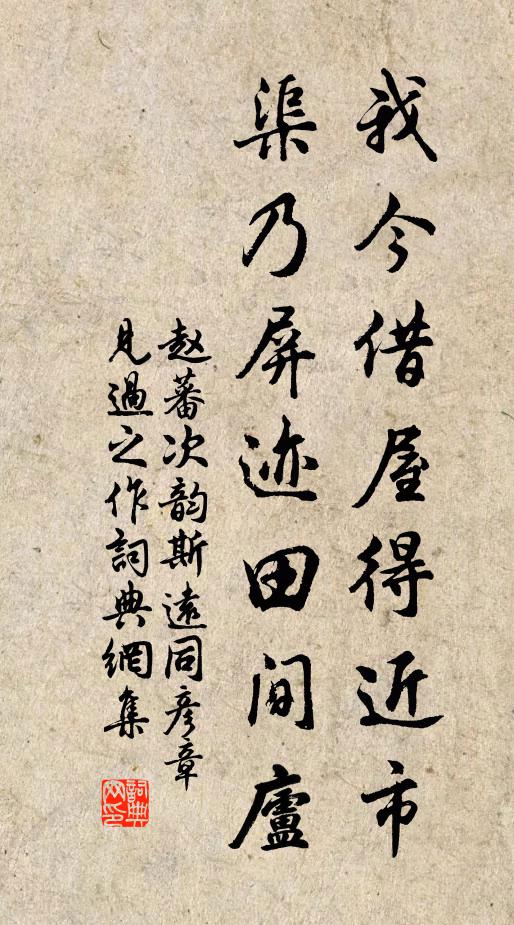 我今借屋得近市
渠乃屏迹田间廬
赵蕃次韵斯遠同彦章
見過之作詞典網集
詞典网印